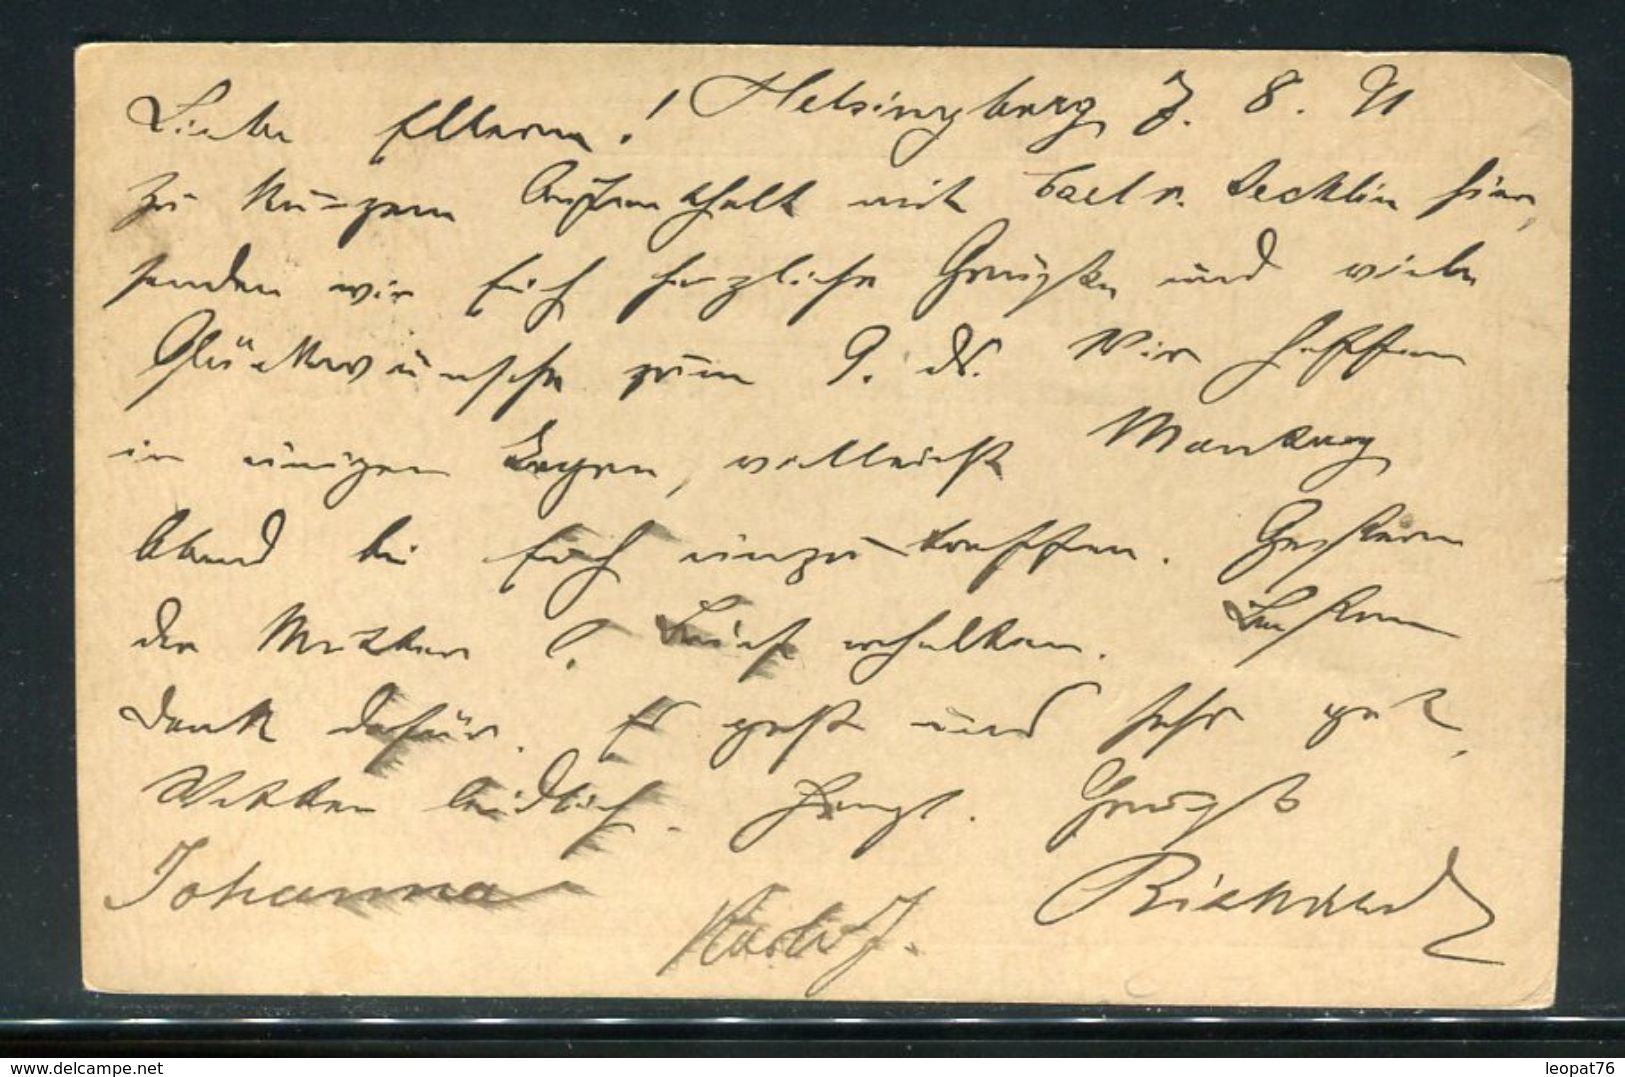 Liebe Eltern! Helsingborg 7. 8. 91
Zu kurzem Aufenthalt mit v. Decklin hier,
senden wir Euch herzliche Grüße und viele
Glückwünsche zum 9. ds. Wir hoffen
in einigen Tagen, vielleicht Montag
Abend bei Euch einzutreffen. Gestern
der Mutter Brief erhalten. Besten
Dank dafür. Es geht uns sehr gut,
Wetter leidlich. Herzl. Gruß
Johanna Richard
leopat76
delcampe.net